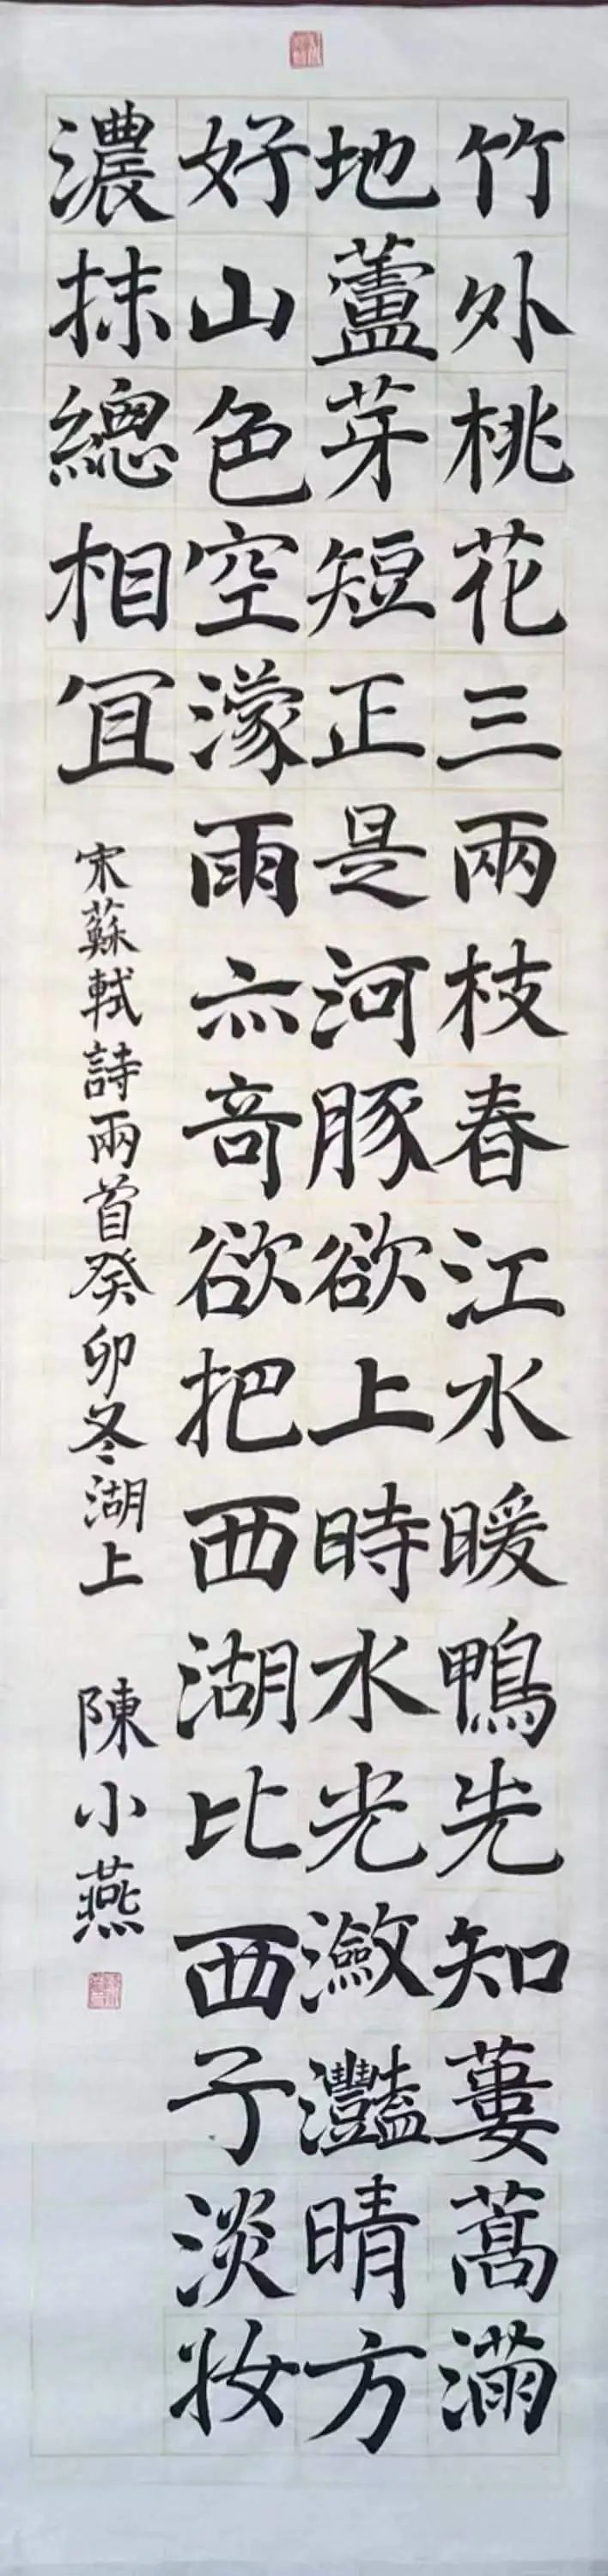 竹外桃花三兩枝春江水暖鴨先知蔞蒿滿
地蘆芽短正是河豚欲上時水光瀲灩晴方
好山色空濛雨亦奇欲把西湖比西子淡妆
濃抹總相冝
宋蘇軾詩兩首癸卯冬湖上 陳小燕